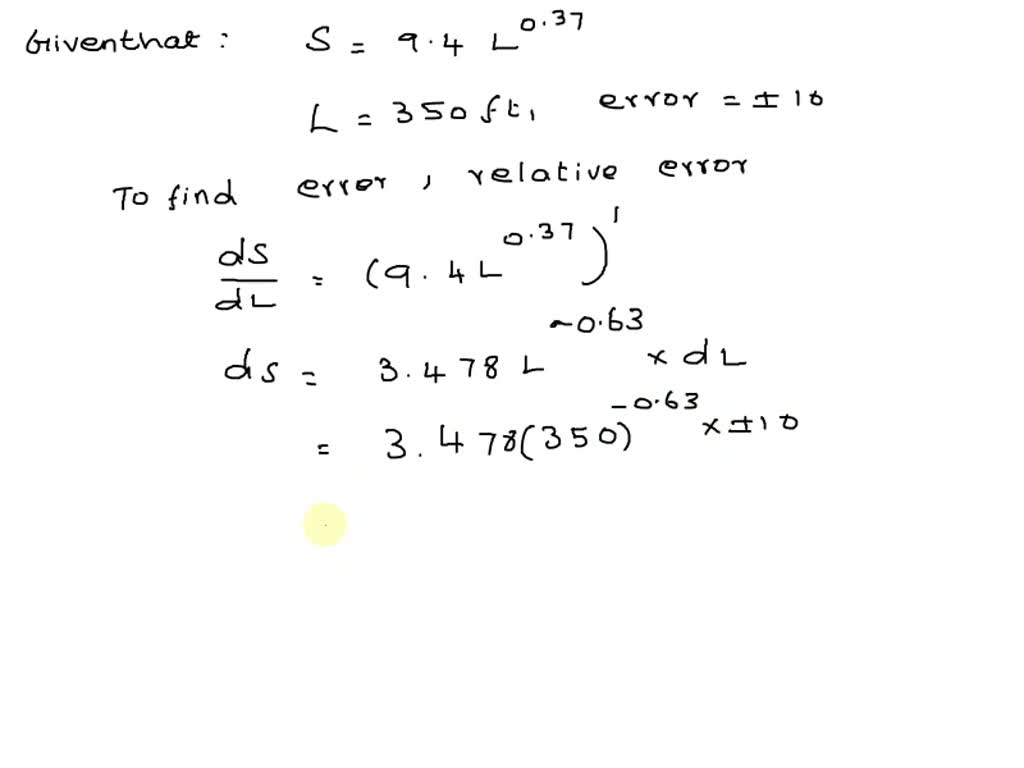 Giventhat : S = 9.4 L^0.37
L = 350 ft, error = ± 10
To find error, relative error
dS/dL = (9.4 L^0.37)'
ds = 3.478 L^-0.63 × dL
= 3.478(350)^-0.63 × ±10